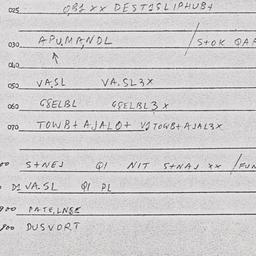 025 0,B1 XX DEST1SLIPHUB+
030 APU,MA,NDL /S+OK QAF
040
050 VA,SL VA.SL3X
060 GSELBL GSELBL3X
070 TOWB+AJALQ+ TOWB+AJAL3X
S+NEJ QI NIT S+NAJ XX /FUN
VA.SL QI PL
PATE,LNEE
DUSVORT